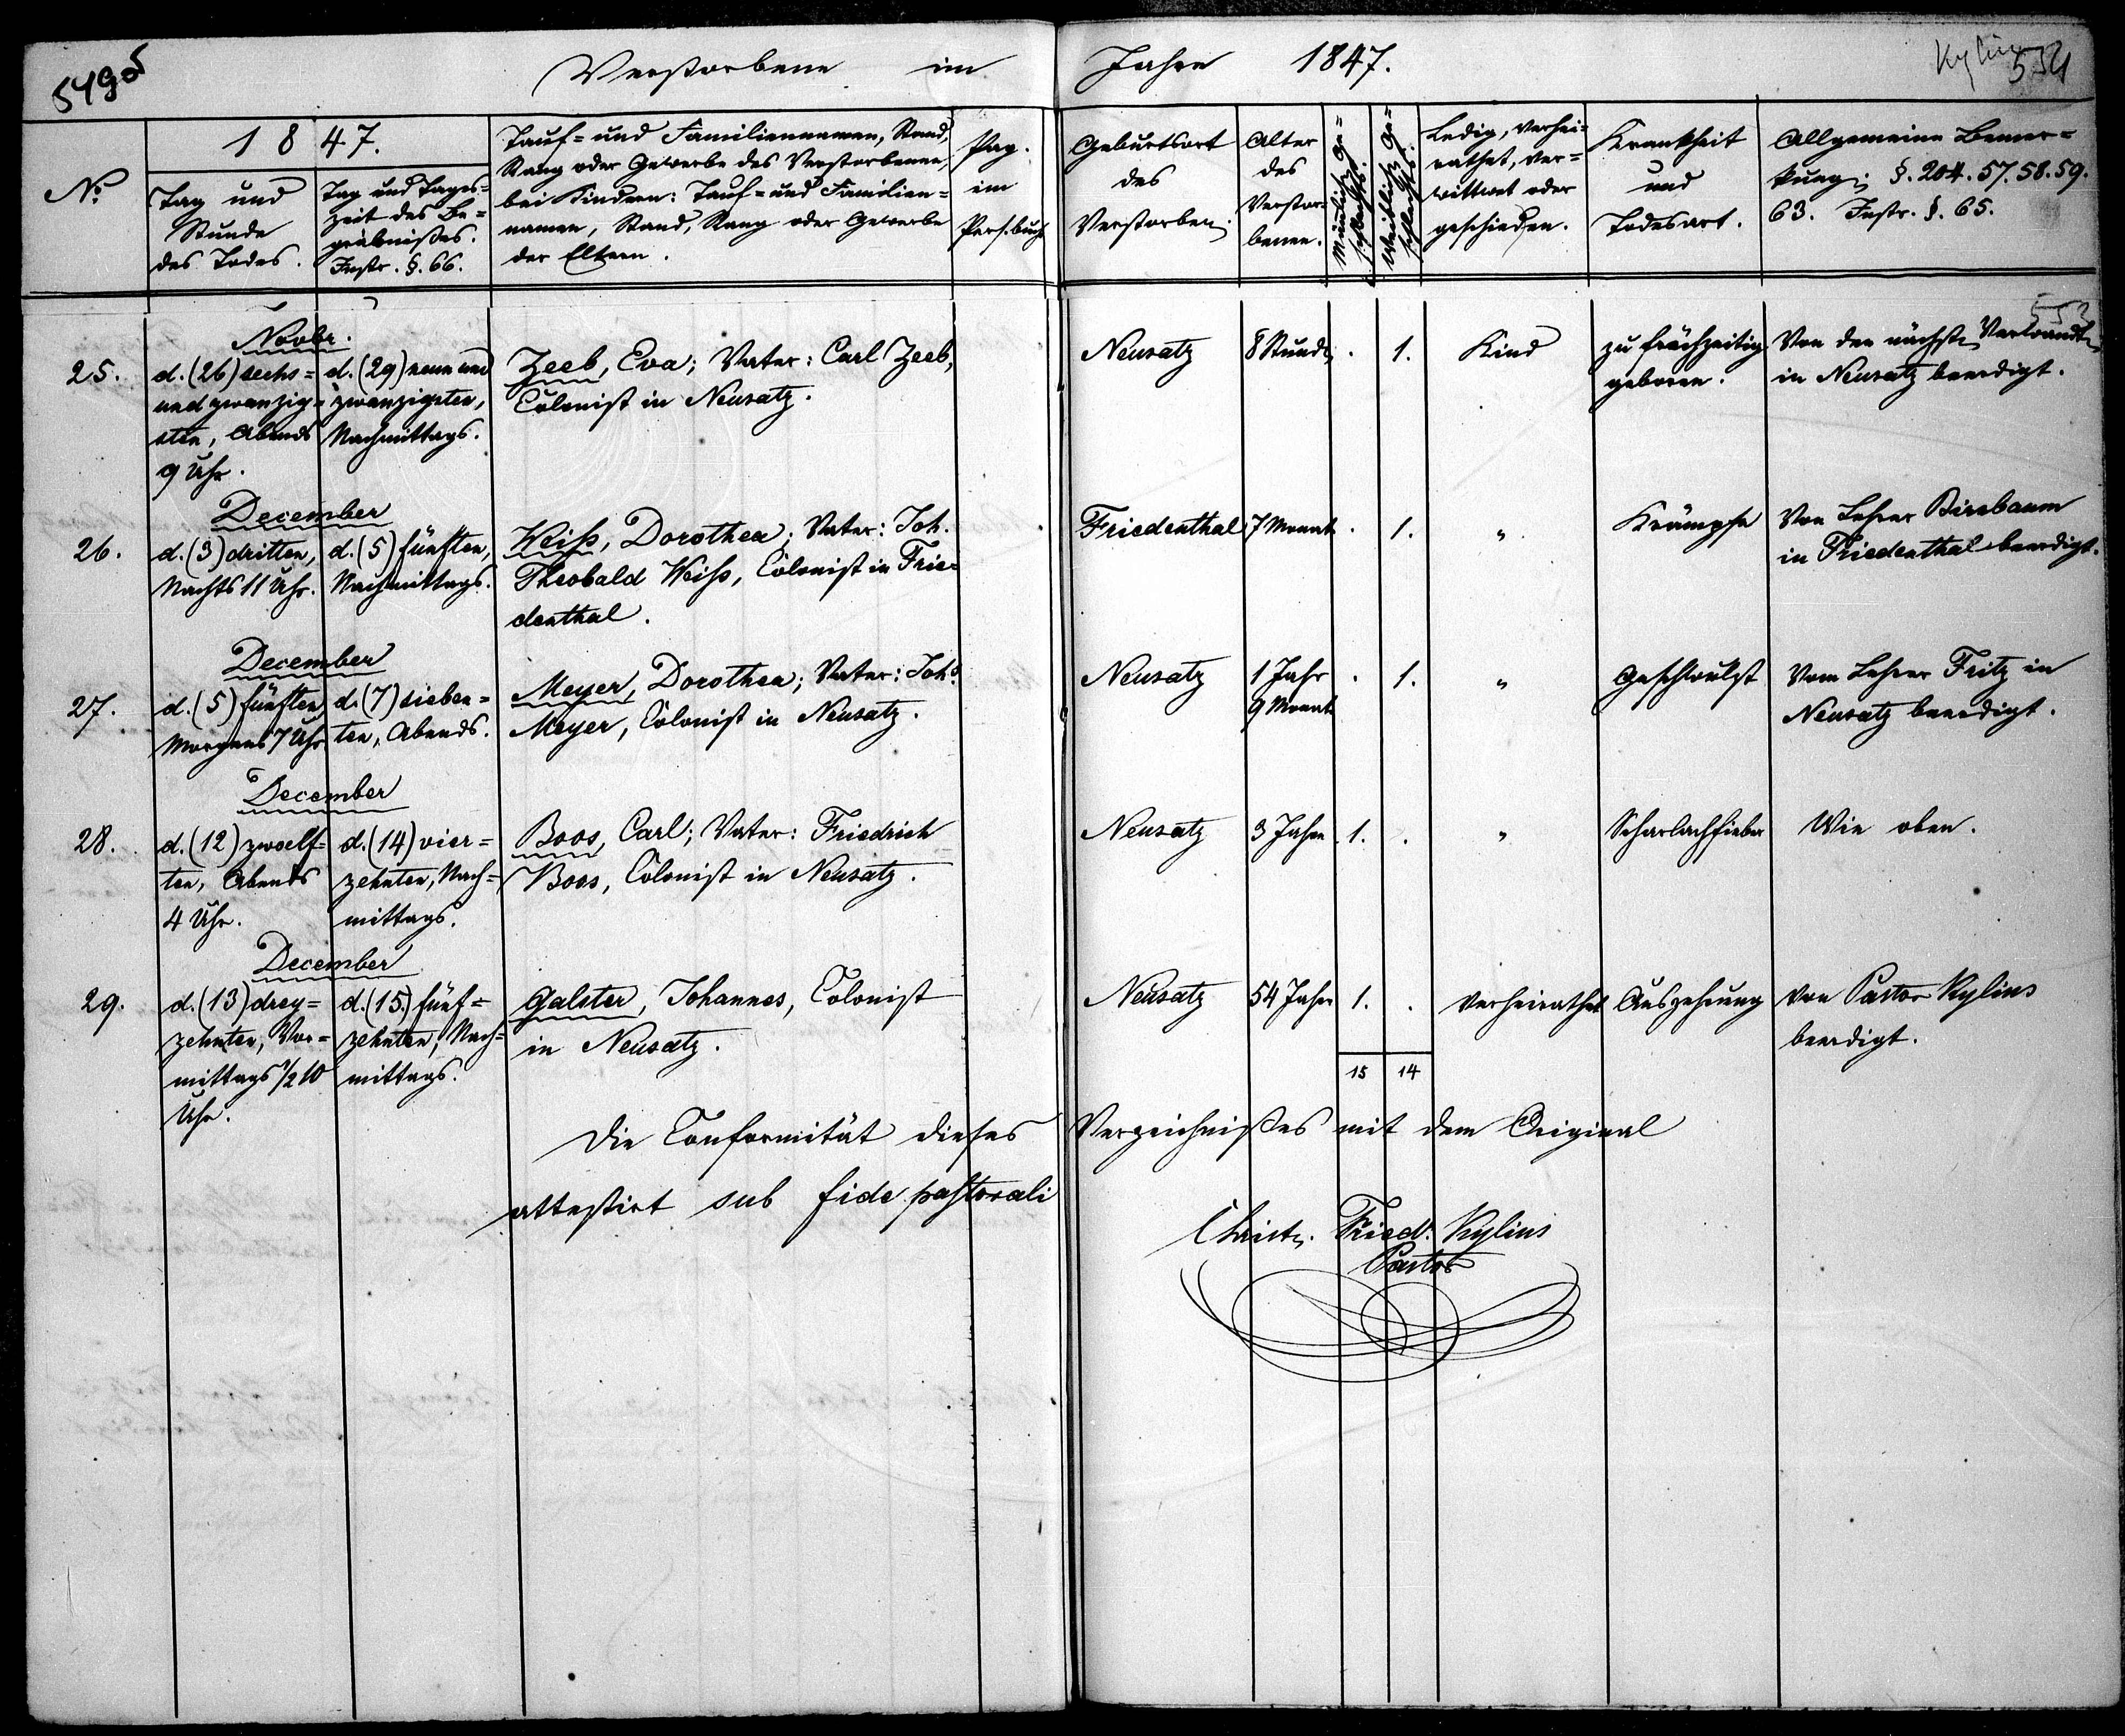 549 ob
Verstorbene im Jahre 1847.
554
No.
1847.
Tag und
Stunde
des Todes.
Tag und Tages-
zeit des Be-
gräbnißes.
Instr. §. 66.
Tauf- und Familiennamen, Stand,
Rang oder Gewerbe des Verstorbenen,
bei Kindern: Tauf- und Familien-
namen, Stand, Rang oder Gewerbe
der Eltern.
Pag.
im
Pers.buch
Geburtsort
des
Verstorben.
Alter
des
Verstor-
benen.
Männlich. Ge-
schlechts.
Weiblich. Ge-
schlechts.
Ledig, verhei-
rathet, ver-
wittwet oder
geschieden.
Krankheit
und
Todesart.
Allgemeine Bemer-
kung. §. 204. 57. 58. 59.
63. Instr. §. 65.
553
25.
Novbr.
d. (26) sechs-
und zwanzig-
sten, Abends
9 Uhr.
d. (29) neun und
zwanzigsten,
Nachmittags.
Zeeb, Eva; Vater: Carl Zeeb,
Colonist in Neusatz.
Neusatz
8 Stunde
.
1.
Kind
zu frühzeitig
geboren.
Von den nächsten Verwandten
in Neusatz beerdigt.
26.
December
d. (3) dritten,
Nachts 11 Uhr.
d. (5) fünften,
Nachmittags.
Weiß, Dorothea; Vater: Joh.
Theobald Weiß, Colonist in Frie-
denthal.
Friedenthal
7 Monat
.
1.
"
Krämpfe
Von Lehrer Birebaum
in Friedenthal beerdigt.
27.
December
d. (5) fünften
Morgens 7 Uhr
d. (7) sieben-
ten, Abends.
Meyer, Dorothea; Vater: Johs.
Meyer, Colonist in Neusatz.
Neusatz
1 Jahr
9 Monat
.
1.
"
Geschwulst
Vom Lehrer Fritz in
Neusatz beerdigt.
28.
December
d. (12) zwoelf-
ten, Abends
4 Uhr.
d. (14) vier-
zehnten, Nach-
mittags.
Boos, Carl; Vater: Friedrich
Boos, Colonist in Neusatz.
Neusatz
3 Jahre
1.
.
"
Scharlachfieber
Wie oben.
29.
December
d. (13) drey-
zehnten, Vor-
mittags 1/2 10
Uhr.
d. (15) fünf-
zehnten, Nach-
mittags.
Galster, Johannes, Colonist
in Neusatz.
Neusatz
54 Jahre
1.
.
Verheirathet
Auszehrung
Von Pastor Kylius
beerdigt.
15
14
Die Conformität dieses Verzeichnißes mit dem Original
attestirt sub fide pastorali
Christn. Friedr. Kylius
Pastor